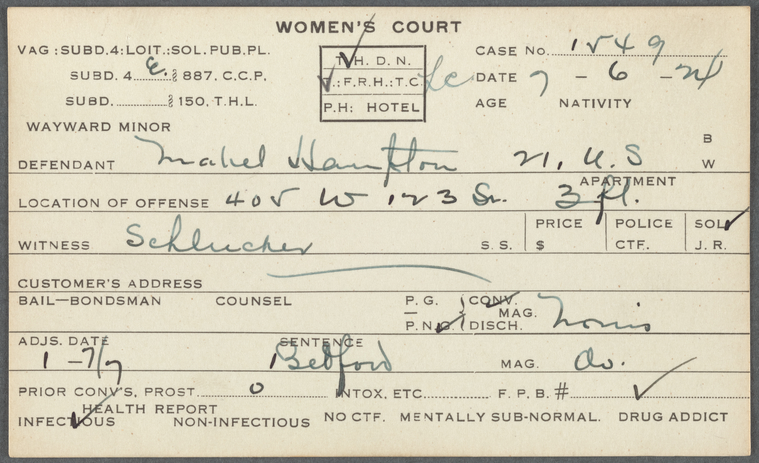 WOMEN'S COURT
VAG : SUBD. 4: LOIT.: SOL. PUB. PL. T. H. D. N. CASE No. 1549
SUBD. 4 E. § 887, C.C.P. T.: F.R.H.: T.C. DATE 7 - 6 - 24
SUBD. § 150, T.H.L. P.H: HOTEL AGE NATIVITY
WAYWARD MINOR B
DEFENDANT Mabel Hampton 21, U.S W
LOCATION OF OFFENSE 405 W 123 St. APARTMENT 3 fl.
WITNESS Schlucher S. S. PRICE $ POLICE CTF. SOL. J. R.
CUSTOMER'S ADDRESS
BAIL—BONDSMAN COUNSEL P. G. CONV. MAG. Norris
P. N. G. DISCH.
ADJS. DATE SENTENCE
1 - 7/7 1 Bedford MAG. Do.
PRIOR CONV'S, PROST. 0 INTOX, ETC. F. P. B. #
HEALTH REPORT
INFECTIOUS NON-INFECTIOUS NO CTF. MENTALLY SUB-NORMAL. DRUG ADDICT